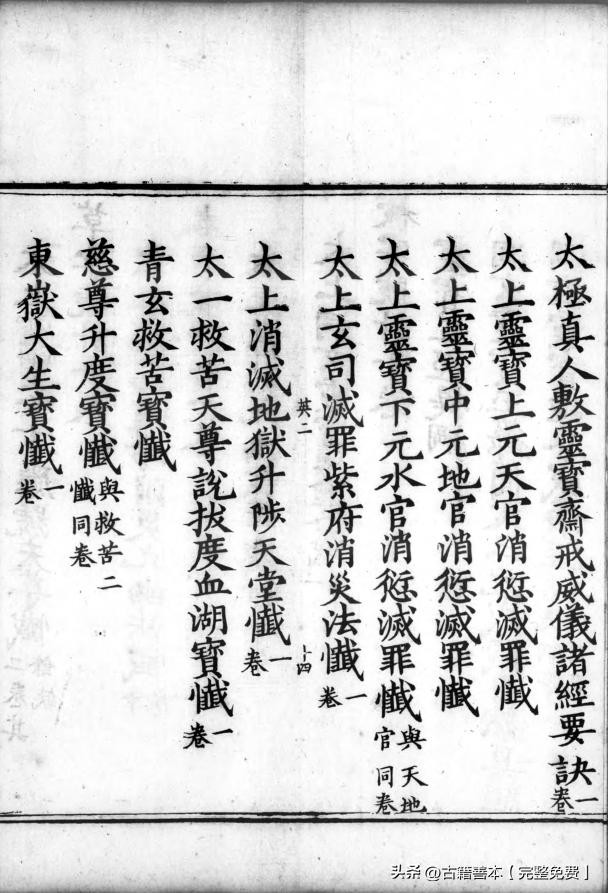 太極真人敷靈寶齋戒威儀諸經要訣一卷
太上靈寶上元天官消愆滅罪懺
太上靈寶中元地官消愆滅罪懺
太上靈寶下元水官消愆滅罪懺與天地官同卷
太上玄司滅罪紫府消災法懺一卷
英二
太上消滅地獄升陟天堂懺一卷
太一救苦天尊說拔度血湖寶懺一卷
青玄救苦寶懺
慈尊升度寶懺與救苦二懺同卷
東嶽大生寶懺一卷
头条 @古籍善本【完整免费】